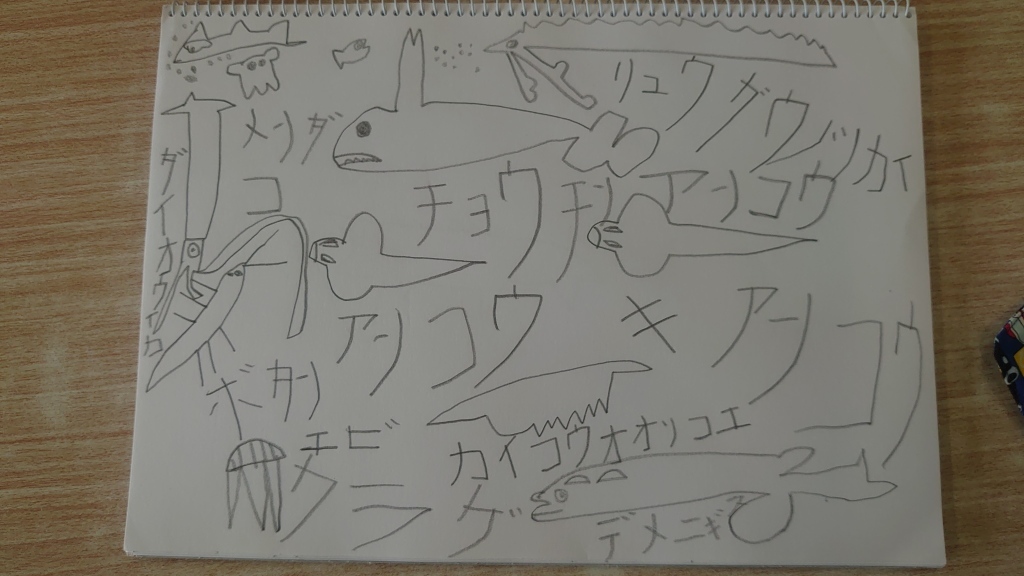 リュウグウノツカイ
メンダコ
ダイオウイカ
チョウチンアンコウ
アンコウ
キアンコウ
ボタンエビ
カイコウオオソコエ
クラゲ
デメニギ